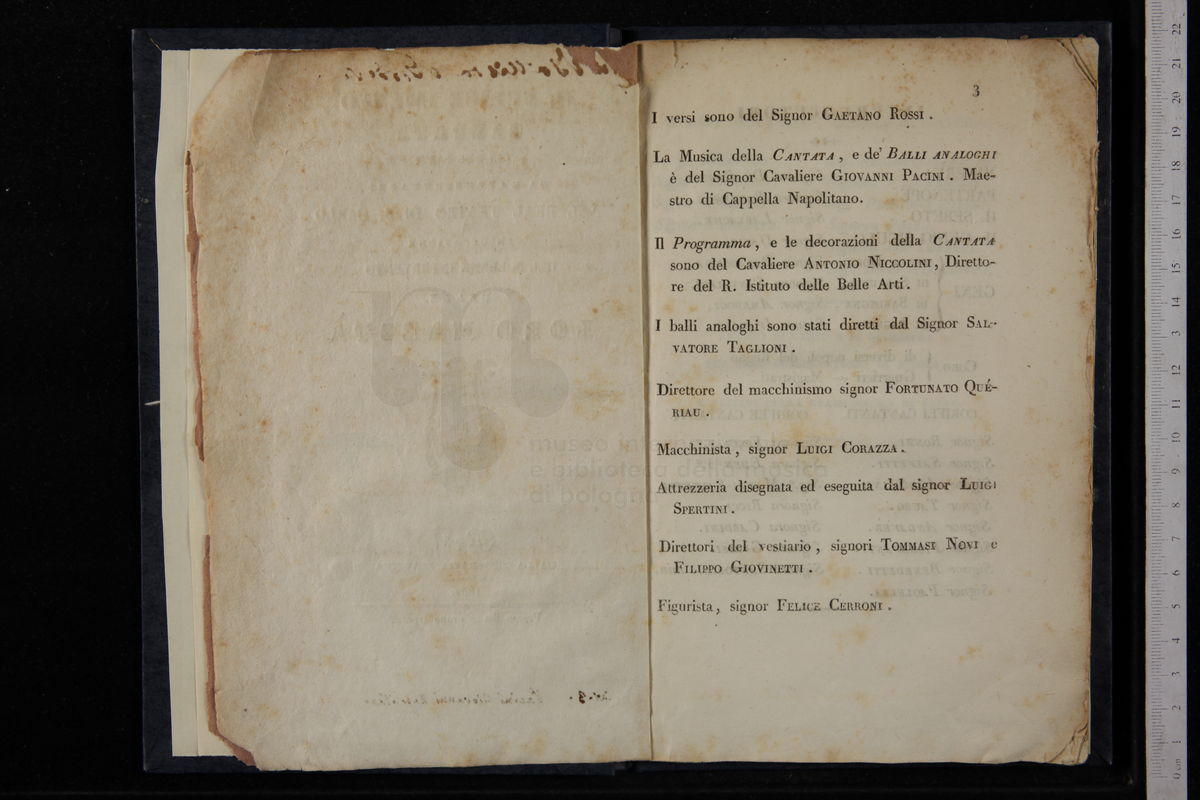 3
I versi sono del Signor GAETANO ROSSI .
La Musica della CANTATA , e de' BALLI ANALOGHI
è del Signor Cavaliere GIOVANNI PACINI . Mae-
stro di Cappella Napolitano.
Il Programma , e le decorazioni della CANTATA
sono del Cavaliere ANTONIO NICCOLINI , Diretto-
re del R. Istituto delle Belle Arti .
I balli analoghi sono stati diretti dal Signor SAL-
VATORE TAGLIONI .
Direttore del macchinismo signor FORTUNATO QUÉ-
RIAU .
Macchinista , signor LUIGI CORAZZA .
Attrezzeria disegnata ed eseguita dal signor LUIGI
SPERTINI .
Direttori del vestiario , signori TOMMASI NOVI e
FILIPPO GIOVINETTI .
Figurista , signor FELICE CERRONI .
museo internazionale
e biblioteca della musica
di bologna